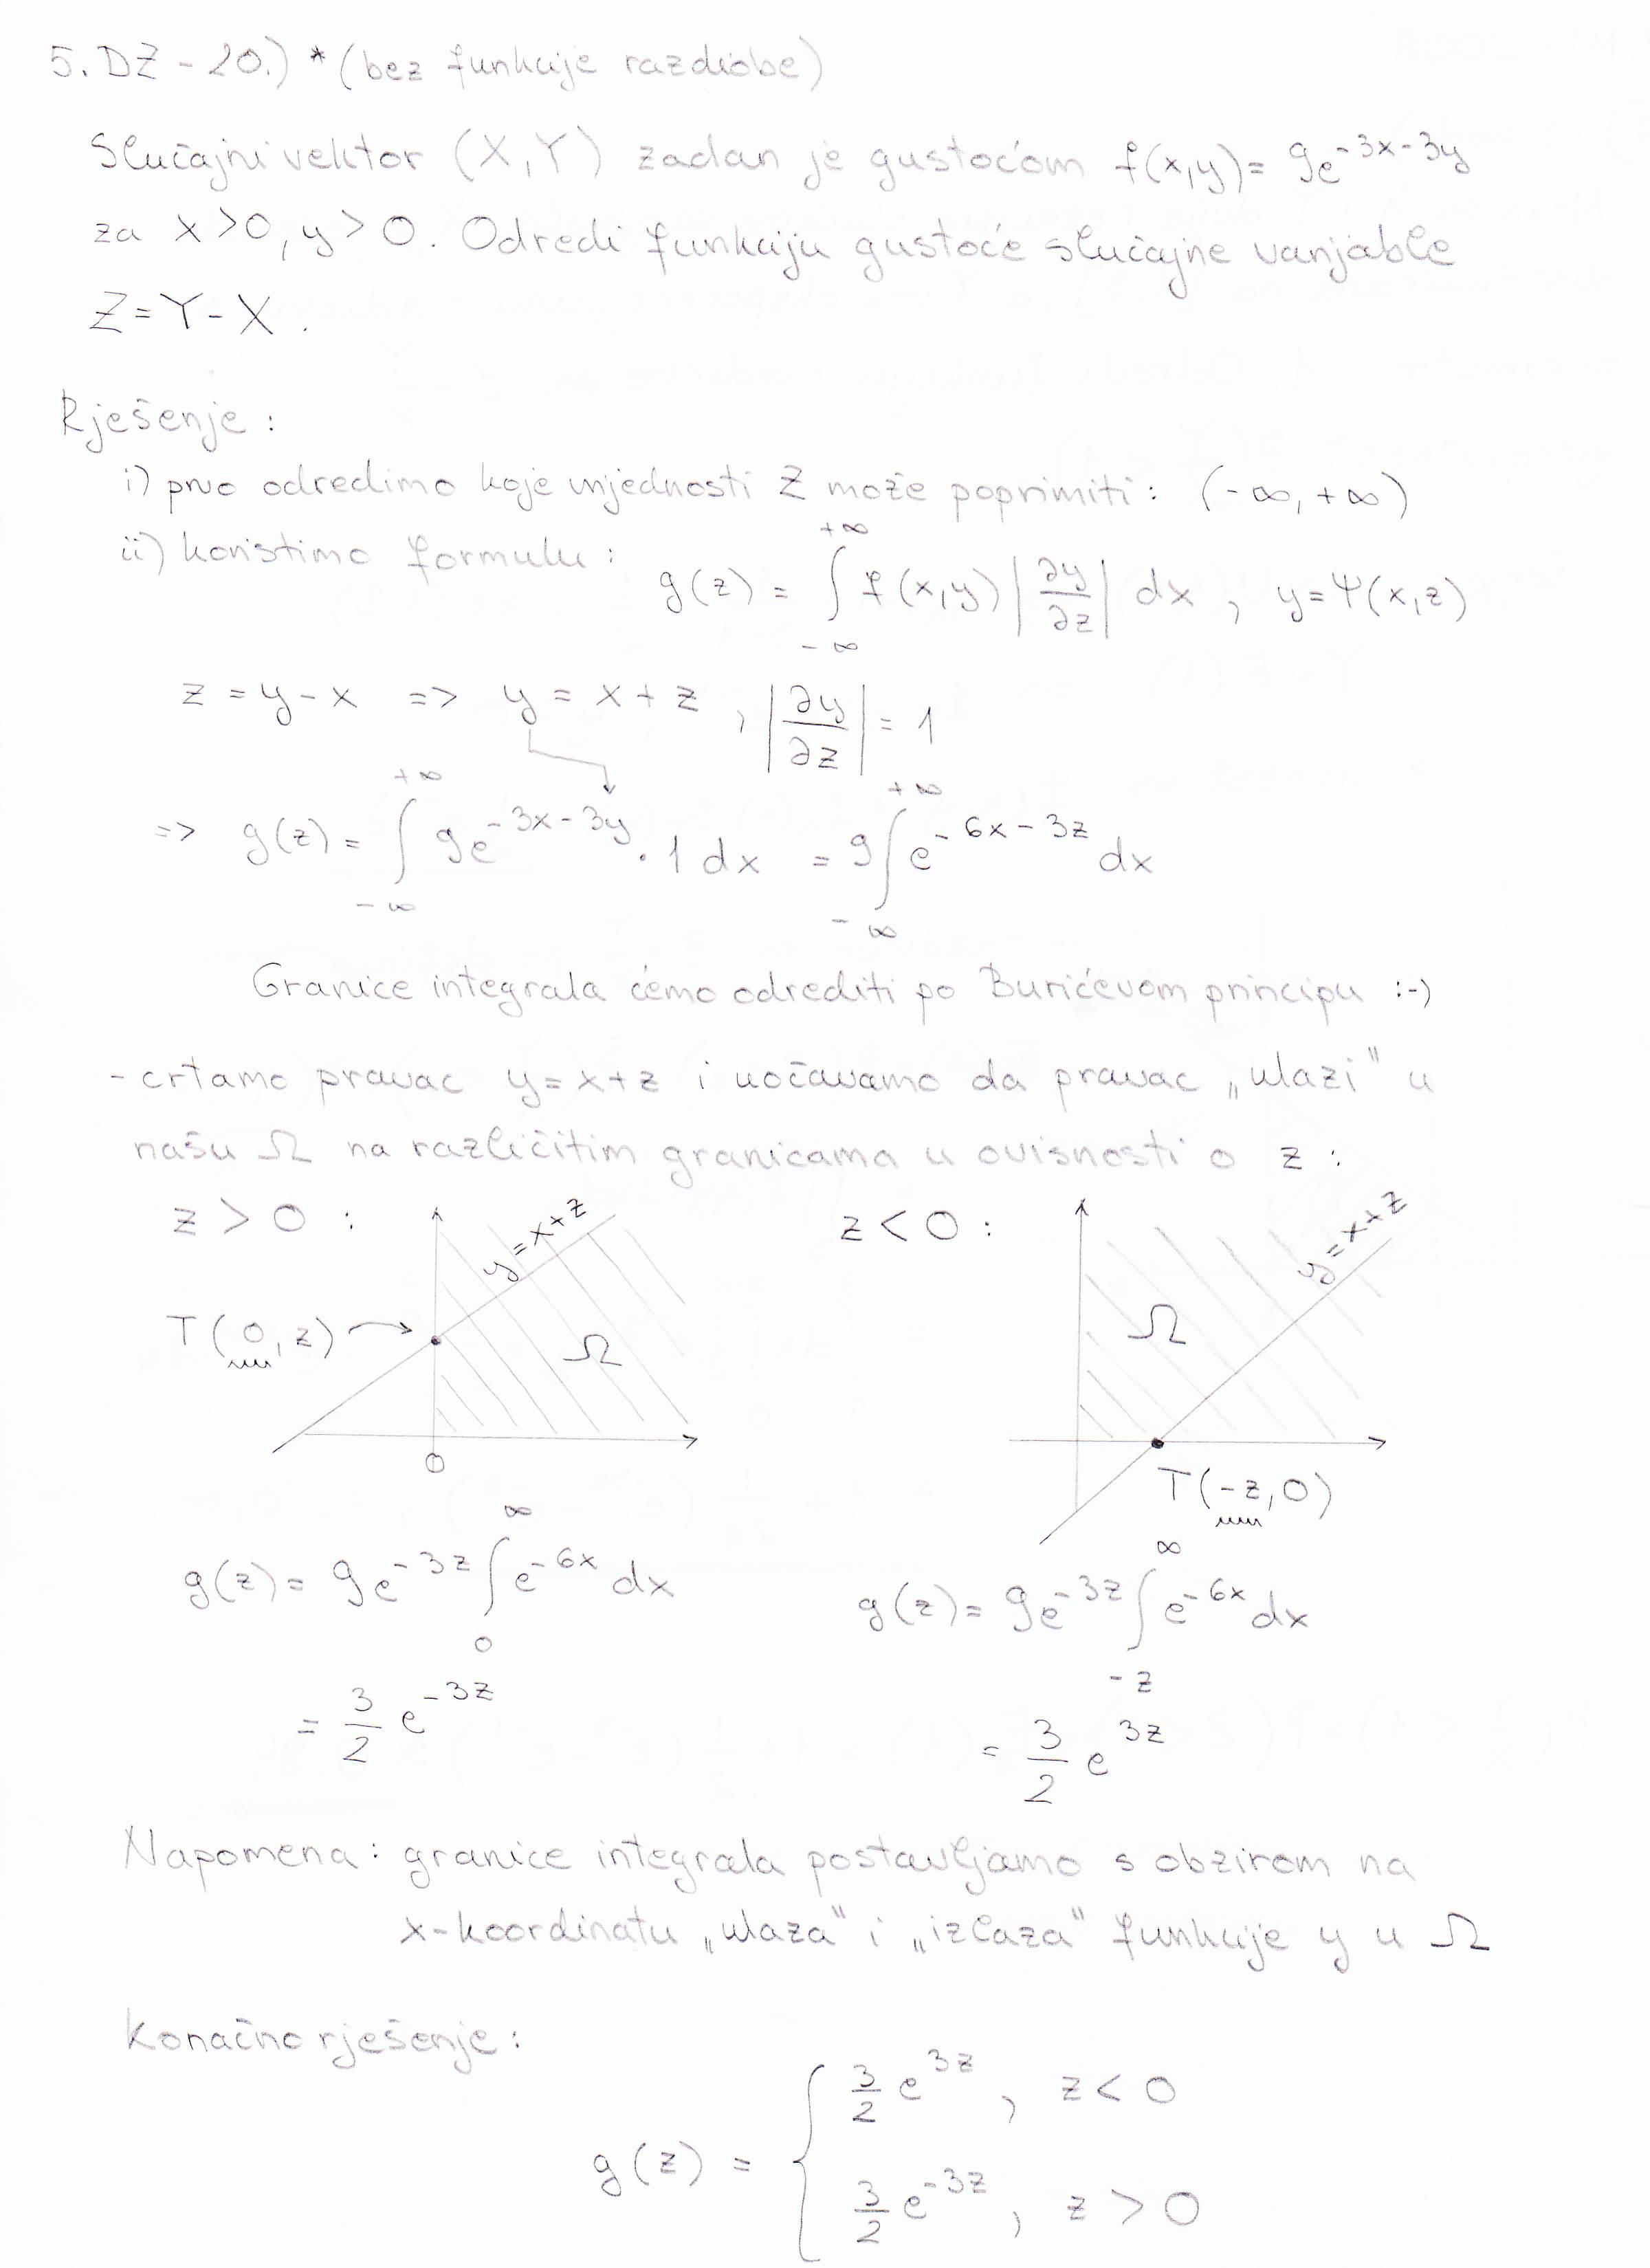 5. DZ - 20.) * (bez funkcije razdiobe)
Slučajni vektor (X,Y) zadan je gustoćom f(x,y)= 9e^{-3x-3y}
za x>0, y>0. Odredi funkciju gustoće slučajne varijable
Z=Y-X.
Rješenje:
i) prvo odredimo koje vrijednosti Z može poprimiti: (-∞, +∞)
ii) koristimo formulu: g(z) = ∫_{-∞}^{+∞} f(x,y) |∂y/∂z| dx , y=Ψ(x,z)
z = y-x => y = x+z , |∂y/∂z| = 1
=> g(z) = ∫_{-∞}^{+∞} 9e^{-3x-3y} · 1 dx = 9∫_{-∞}^{+∞} e^{-6x-3z} dx
Granice integrala ćemo odrediti po Burićevom principu :-)
- crtamo pravac y=x+z i uočavamo da pravac „ulazi" u
našu Ω na različitim granicama u ovisnosti o z :
z > 0 :
y=x+z
T(0,z)
Ω
0
z < 0 :
y=x+z
Ω
T(-z,0)
g(z) = 9e^{-3z} ∫_{0}^{∞} e^{-6x} dx
= 3/2 e^{-3z}
g(z) = 9e^{-3z} ∫_{-z}^{∞} e^{-6x} dx
= 3/2 e^{3z}
Napomena: granice integrala postavljamo s obzirom na
x-koordinatu „ulaza" i „izlaza" funkcije y u Ω
Konačno rješenje:
g(z) = { 3/2 e^{3z} , z < 0
3/2 e^{-3z} , z > 0